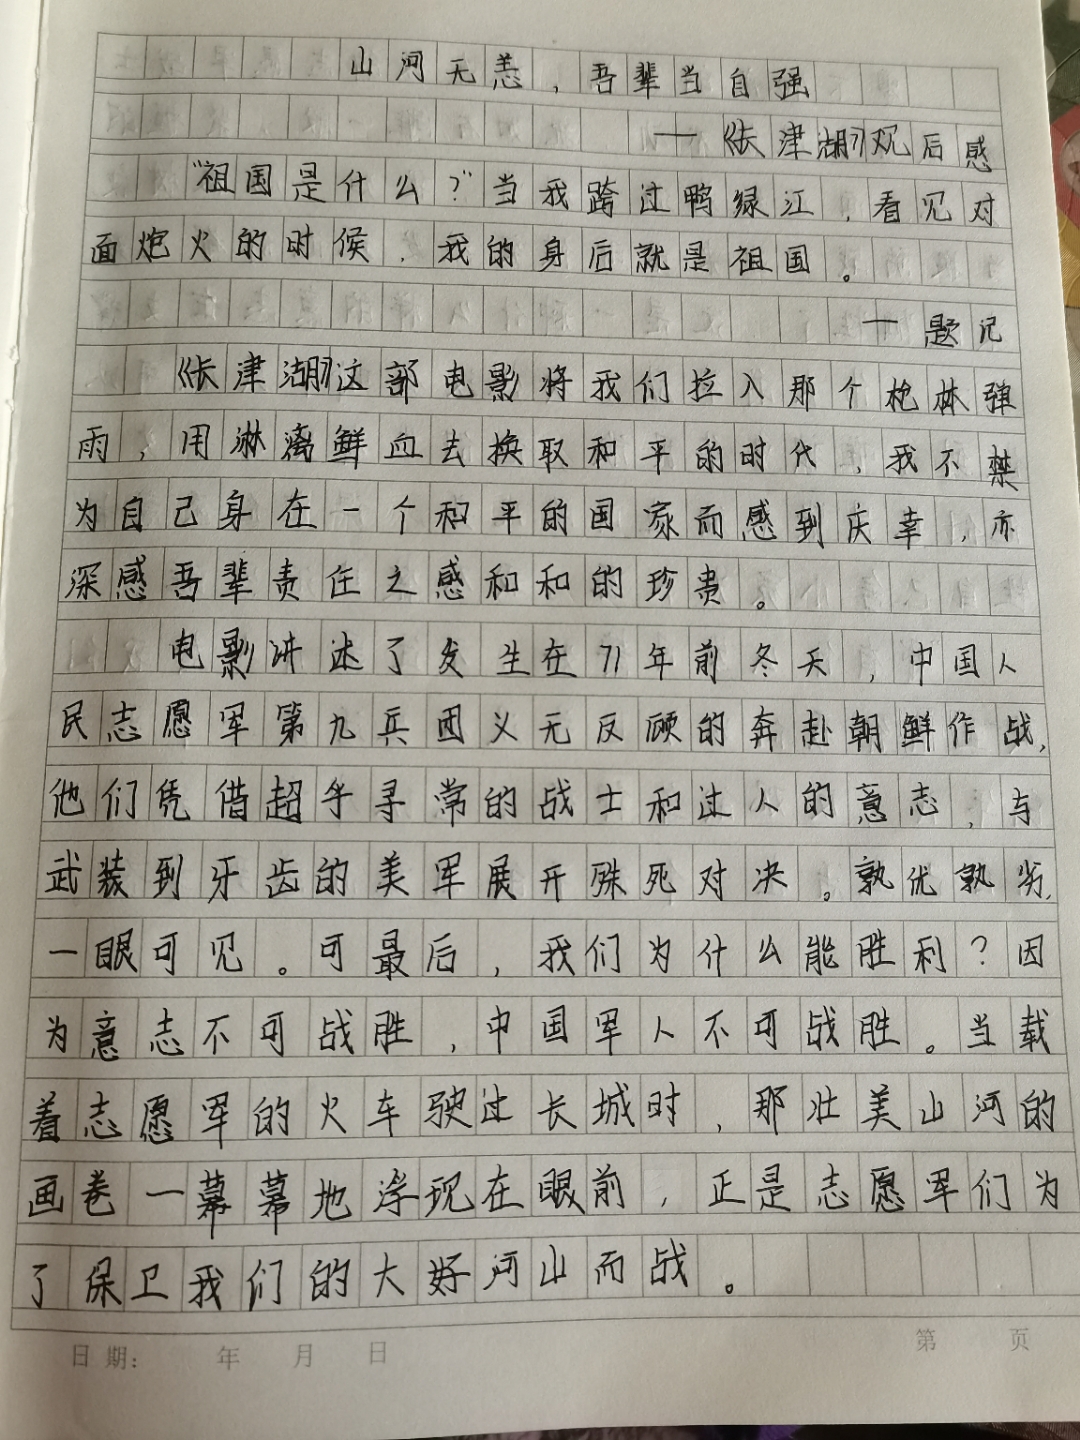 山河无恙，吾辈当自强
——《长津湖》观后感
“祖国是什么？”当我跨过鸭绿江，看见对
面炮火的时候，我的身后就是祖国。
——题记
《长津湖》这部电影将我们拉入那个枪林弹
雨，用淋漓鲜血去换取和平的时代，我不禁
为自己身在一个和平的国家而感到庆幸，亦
深感吾辈责任之感和和的珍贵。
电影讲述了发生在71年前冬天，中国人
民志愿军第九兵团义无反顾的奔赴朝鲜作战，
他们凭借超乎寻常的战士和过人的意志，与
武装到牙齿的美军展开殊死对决。孰优孰劣，
一眼可见。可最后，我们为什么能胜利？因
为意志不可战胜，中国军人不可战胜。当载
着志愿军的火车驶过长城时，那壮美山河的
画卷一幕幕地浮现在眼前，正是志愿军们为
了保卫我们的大好河山而战。
日期： 年 月 日
第 页